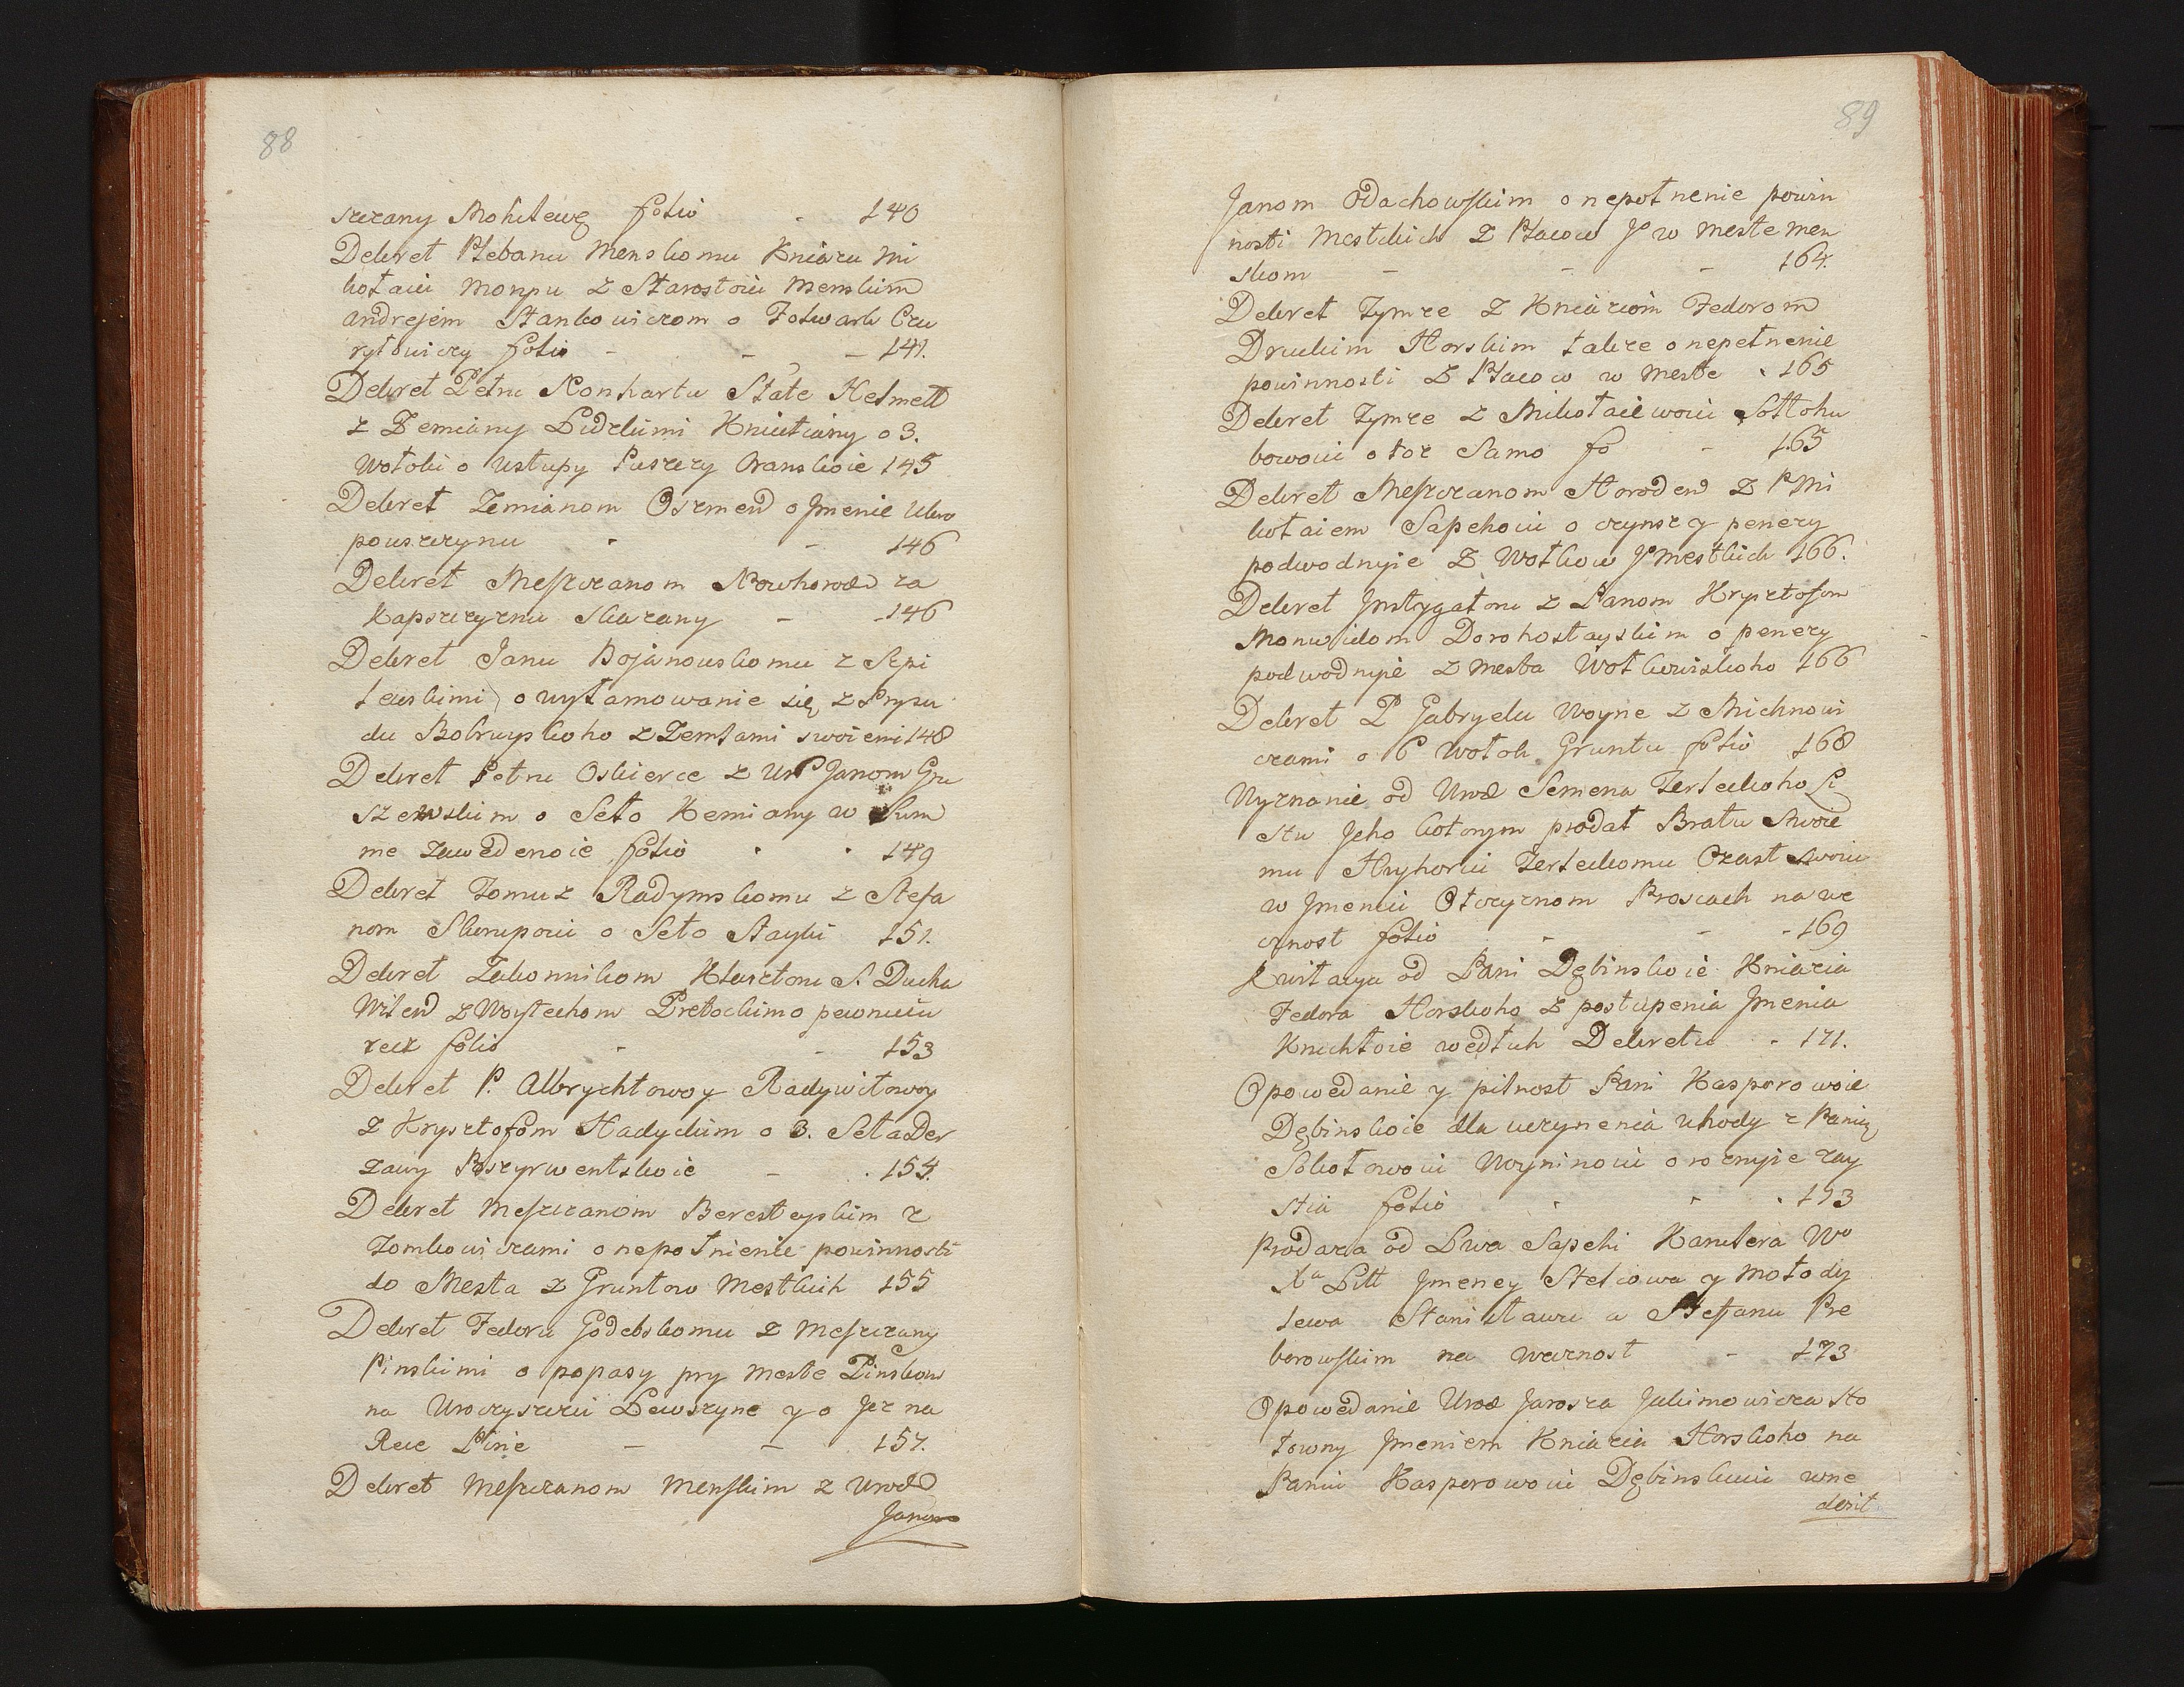 88
szczany Mohilewę folio - 140
Dekret Plebanu Menskomu Kniazu Mi
kołaiu Monpu z Starostoiu Menskim
Andrejem Stankowiczom o Folwark Czu
ryłowiczy folio - - - 141.
Dekret Petru Nonhartu State Helmett
z Zemiany Lidzkimi Kniutiany o 3.
Wołoki o Ustupy Puszczy Oranskoie 145
Dekret Zemianom Oszmend o Jmenie Ukro
powszczynu - - 146
Dekret Meszczanom Nowhorodd za
Kapszczyznu skazany - - 146
Dekret Janu Bojanowskomu z Szpi
lewskimi o wyłamowanie się z Prysu
du Bobruyskoho z Zemlami swoiemi 148
Dekret Petru Oskierce z Ur P Janom Gru
szewskim o Seło Kemiany w Sum
me zawedenoie folio - - 149
Dekret Tomusz Radymskomu z Stefa
nom Skumpoiu o Seło Stayki 151.
Dekret Zakonnikom Klasztoru S. Ducha
Wilend z Woytechom Pretockim o pewnuiu
recz folio - - 153
Dekret P. Albrychtowoy Radywiłowoy
z Krysztofom Hadyckim o 3. Seła Der
zawy Poszyrwentskoie - . 154.
Dekret Meszczanom Beresteyskim z
Tomkowiczami o nepołnienie powinnosti
do Mesta z Gruntow Mestkich 155
Dekret Fedoru Godebskomu z Meszczany
Pinskimi o popasy pry Meste Pinskom
na Uroczyszczu Lewszyne y o Jez na
Rece Pinie - - 157.
Dekret Meszczanom Menskim z Urodd
Janom
89
Janom Odachowskim o nepołnenie powin
nosti Mestckich z Placow Jo w Meste Men
skom - - - 164.
Dekret Tymze z Kniaziom Fedorom
Druckim Horskim takze o nepełnenie
powinnosti z Placow w Meste . 165
Dekret Tymze z Mikołaiewoiu Sołłohu
bowoiu o toz Samo fo - 165
Dekret Meszczanom Horodend z P Mi
kołaiem Sapehoiu o czynsz y penezy
podwodnyie z Wołkow Jo Mestkich 166.
Dekret Jnstygatoru z Panom Krysztofom
Monwidom Dorohostayskim o penezy
podwodnyie z Mesta Wołkowiskoho 166
Dekret P Gabryelu Woyne z Michnowi
czami o 6 Wołok Gruntu folio 168
Wyznanie od Urod Semena Terleckoho Li
stu Jeho kotorym prodał Bratu Swoie
mu Hryhoriu Terleckomu Czast swoiu
w Jmeniu Otczyznom Prosiach na we
cznost folio - - - 169
Kwitacya od Pani Dębinskoie Kniazia
Fedora Horskoho z postupenia Jmenia
Knuchtoie wedłuh Dekretu - 171.
Opowedanie y pilnost Pani Kasporowoie
Dębinskoie dla uczynenia uhody z Panią
Sokołowoiu Woyninoiu o roznyie zay
stia folio . . . 173
Prodaza od Lwa Sapehi Kanclera Wo
Xa Litt Jmeney Stetiowa y Mołody
lewa Stanisławu a Stefanu Pre
borowskim na wecznost - 173
Opowedanie Urod Jarosza Jakimowicza Sto
łowny Jmeniem Kniazia Horskoho na
Paniu Kasporowoiu Dębinskuiu wne
desit